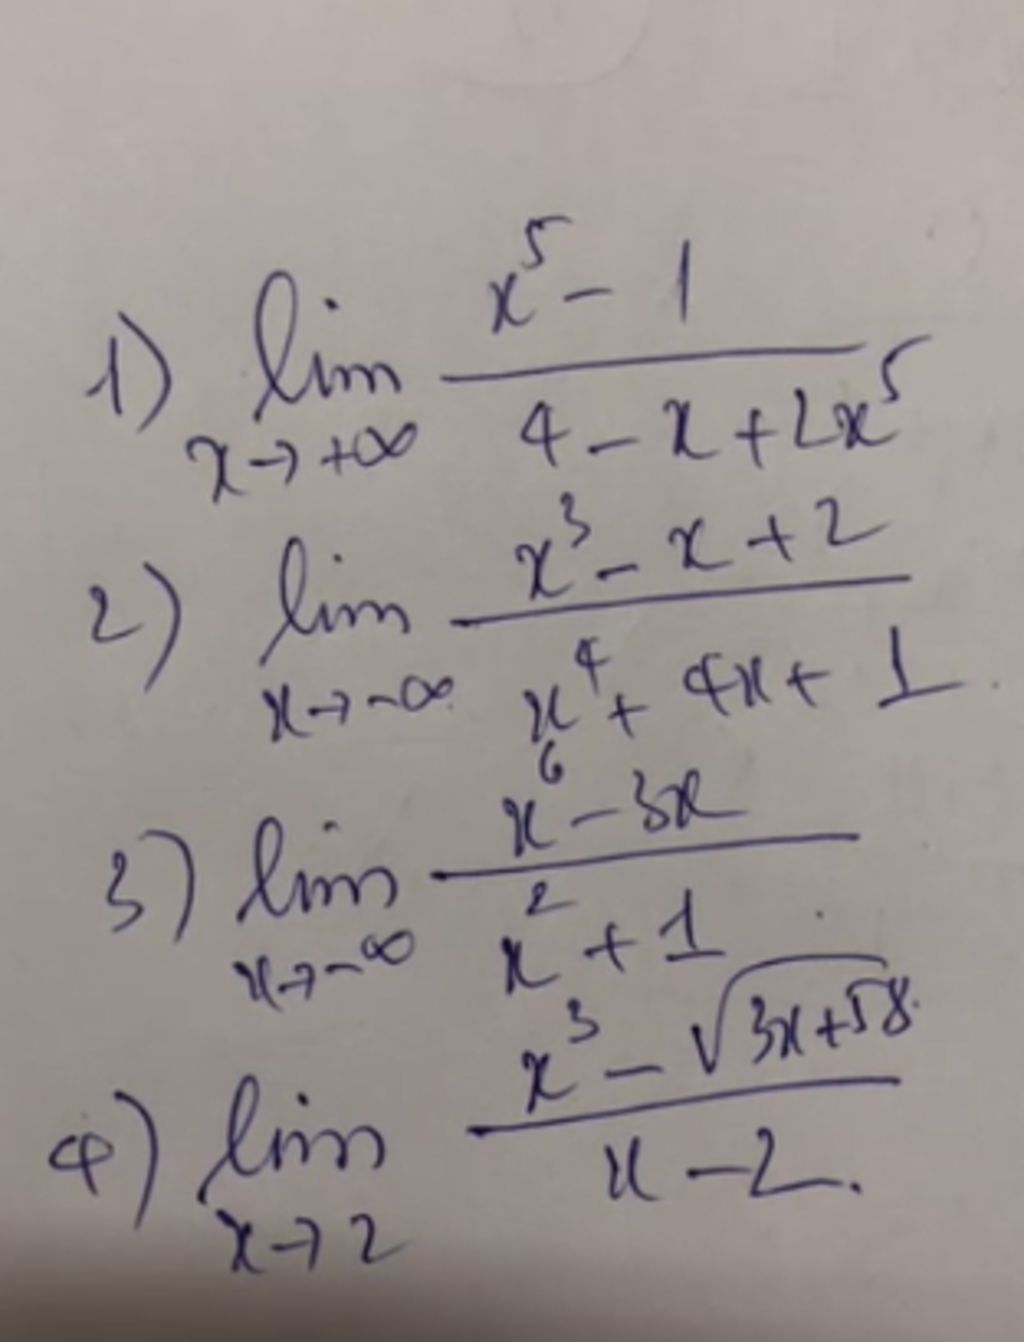 1) lim x→+∞ (x⁵ - 1) / (4 - x + 2x⁵)
2) lim x→-∞ (x³ - x + 2) / (x⁴ + 4x + 1)
3) lim x→-∞ (x⁶ - 3x) / (x² + 1)
4) lim x→2 (x³ - √(3x+58)) / (x - 2).